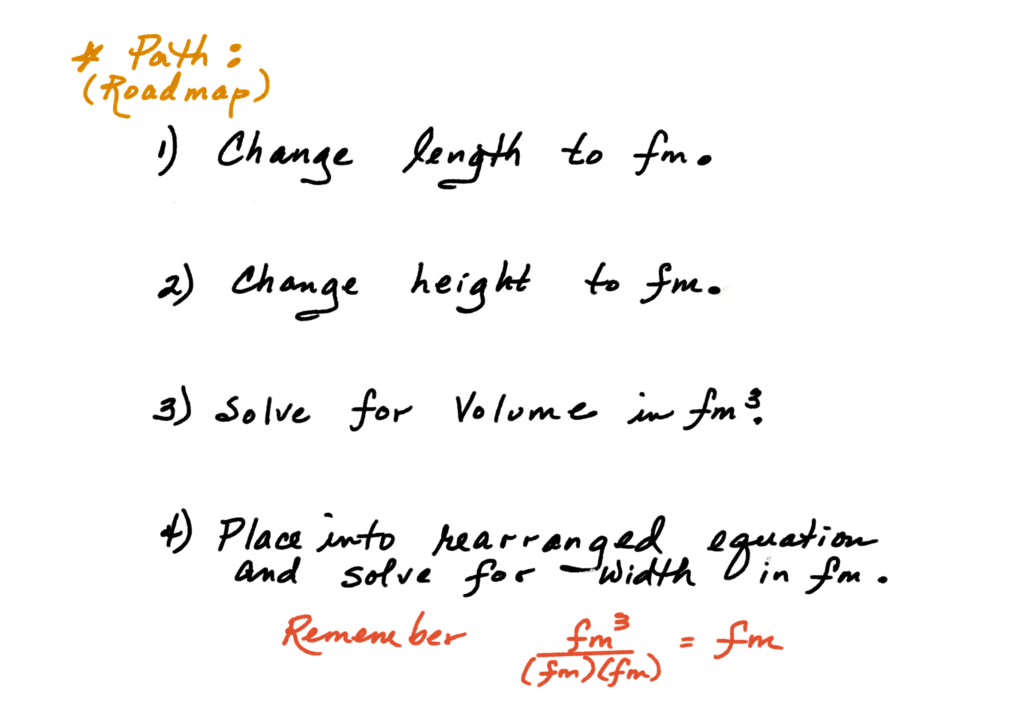 * Path :
(Roadmap)
1) Change length to fm.
2) Change height to fm.
3) Solve for Volume in fm³.
4) Place into rearranged equation
and solve for width in fm.
Remember fm³/(fm)(fm) = fm